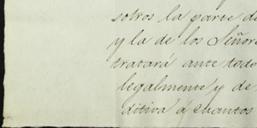 sotros la parte de
y la de los Señor
tratará ante todo
legalmente y de
ditiva á cuantos